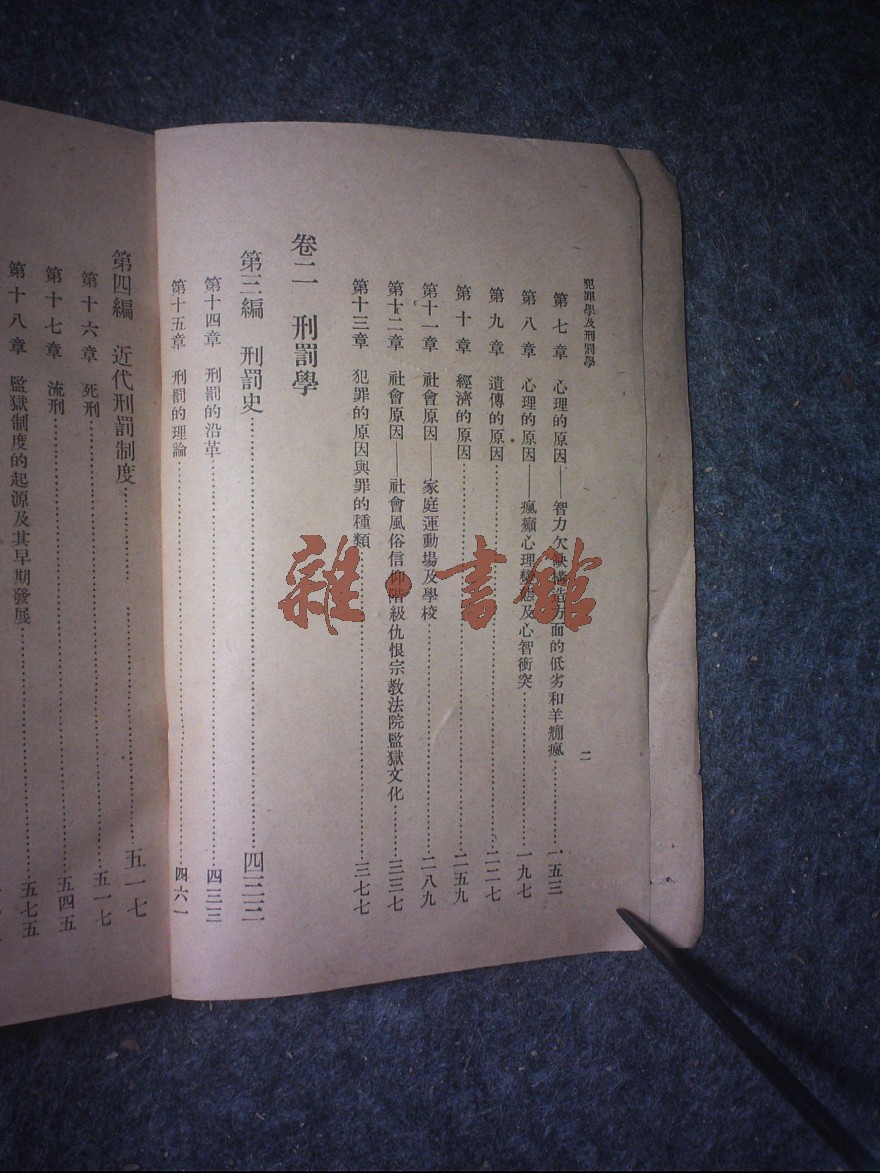 犯罪學及刑罰學
二
第七章 心理的原因——智力欠缺構造方面的低劣和羊癇瘋…………一五三
第八章 心理的原因——瘋癲心理變態及心智衝突…………一九七
第九章 遺傳的原因…………二二七
第十章 經濟的原因…………二五九
第十一章 社會原因——家庭運動場及學校…………二八九
第十二章 社會原因——社會風俗信仰階級仇恨宗教法院監獄文化…………三三七
第十三章 犯罪的原因與罪的種類…………三七七
卷二 刑罰學
第三編 刑罰史…………四三三
第十四章 刑罰的沿革…………四三三
第十五章 刑罰的理論…………四六一
第四編 近代刑罰制度…………五一七
第十六章 死刑…………五一七
第十七章 流刑…………五四五
第十八章 監獄制度的起源及其早期發展…………五七五
雜·書館